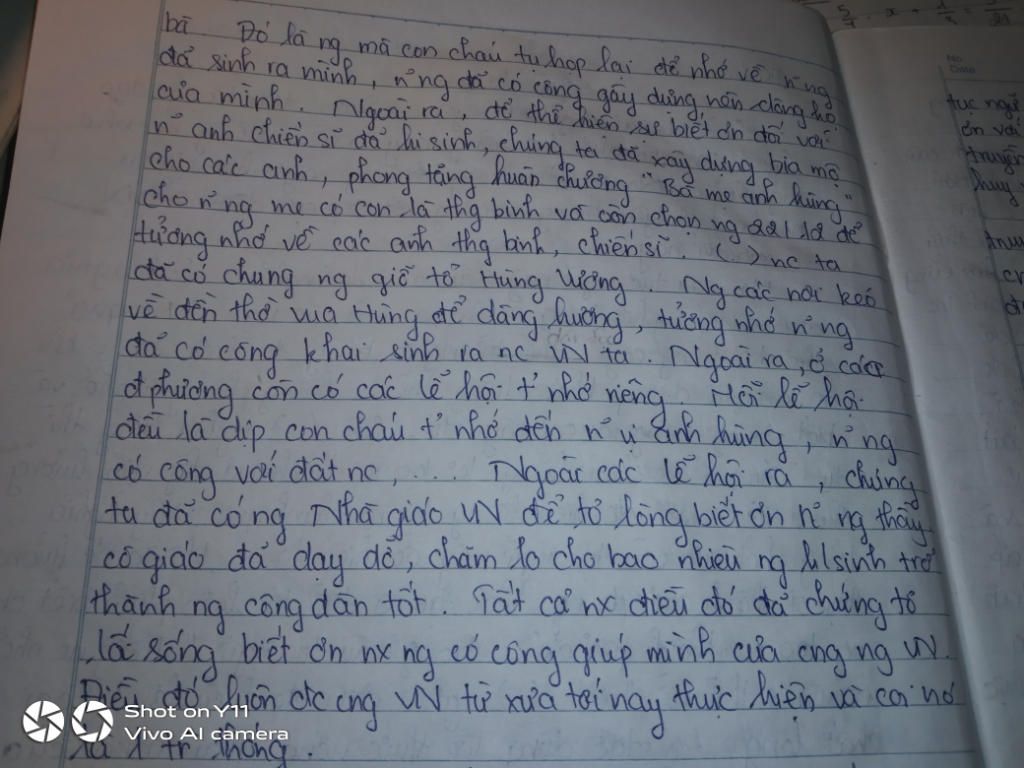 bà Đó là ng mà con cháu tụ họp lại để nhớ về n~ ng
đã sinh ra mình, n~ ng đã có công gây dựng nên dòng họ
của mình. Ngoài ra, để thể hiện sự biết ơn đối với
n~ anh chiến sĩ đã hi sinh, chúng ta đã xây dựng bia mộ
cho các anh, phong tặng huân chương "Bà mẹ anh hùng"
cho n~ ng mẹ có con là thg binh và còn chọn ng 22/12 để
tưởng nhớ về các anh thg binh, chiến sĩ. ( ) nc ta
đã có chung ng giỗ tổ Hùng Vương. Ng các nơi kéo
về đền thờ vua Hùng để dâng hương, tưởng nhớ n~ ng
đã có công khai sinh ra nc VN ta. Ngoài ra, ở các
đ phương còn có các lễ hội t' nhớ riêng. Mỗi lễ hội
đều là dịp con cháu t' nhớ đến n~ vị anh hùng, n~ ng
có công với đất nc, ... Ngoài các lễ hội ra, chúng
ta đã có ng Nhà giáo VN để tỏ lòng biết ơn n~ ng thầy
cô giáo đã dạy dỗ, chăm lo cho bao nhiêu ng h/sinh trở
thành ng công dân tốt. Tất cả nx điều đó đã chứng tỏ
lẽ sống biết ơn nx ng có công giúp mình của cng ng VN.
Điều đó luôn đc cng VN từ xưa tới nay thực hiện và coi nó
là 1 tr thống.
No
Date
tục ngữ
ơn với
truyền
huy
Shot on Y11
Vivo AI camera